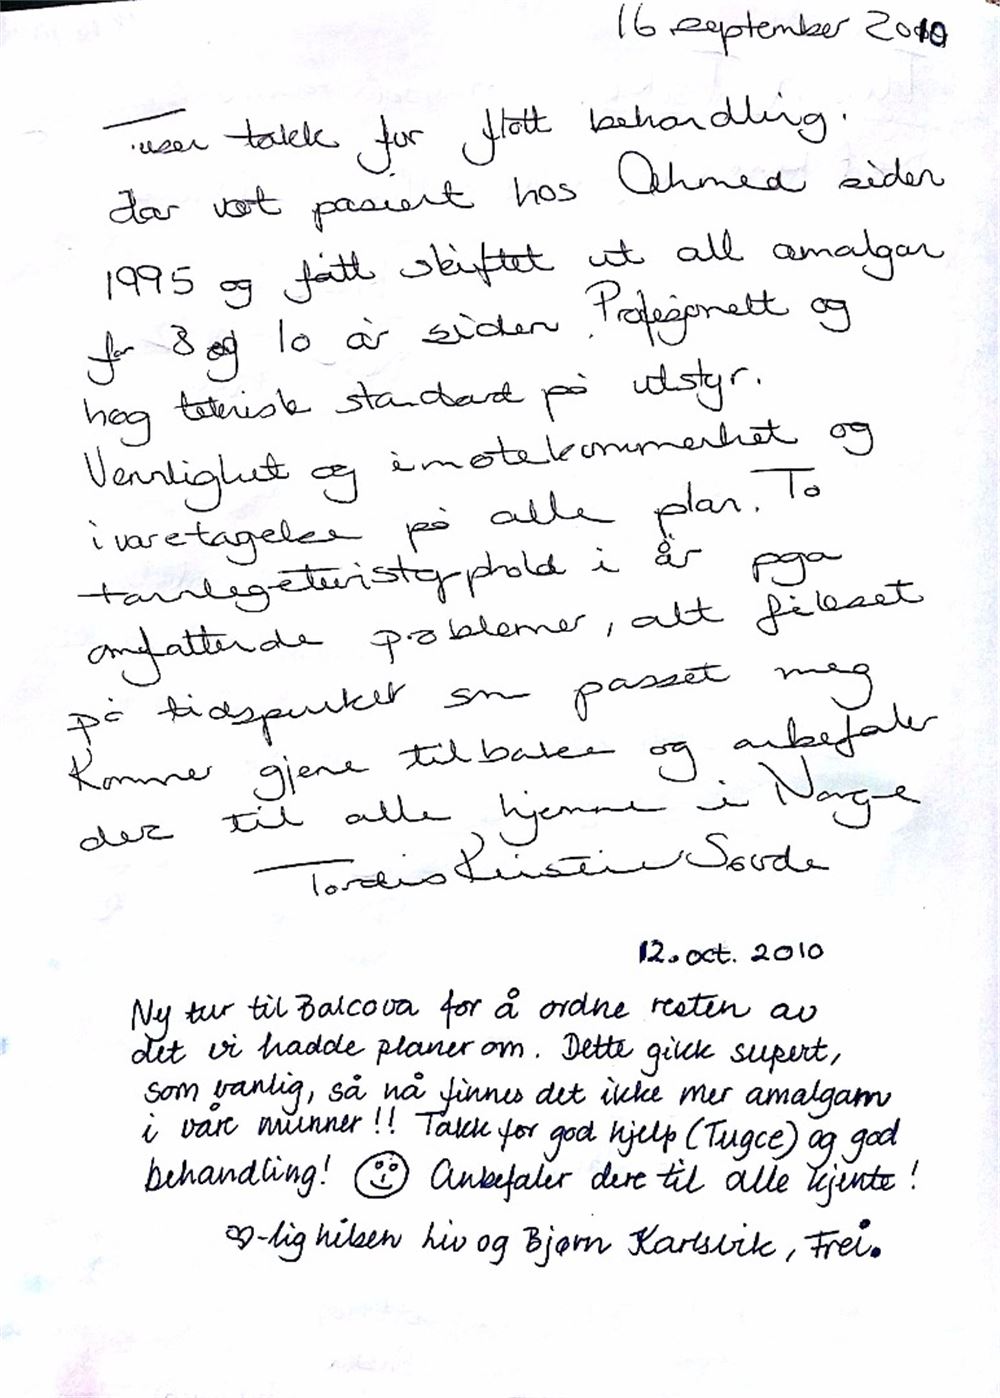 16 september 2010
Tusen takk for flott behandling.
Har vært pasient hos Ahmed siden
1995 og fått skiftet ut all amalgam
for 8 og 10 år siden. Profesjonelt og
høg teknisk standard på utstyr.
Vennlighet og imøtekommenhet og
ivaretagelse på alle plan. To
tannlegeturistopphold i år pga
omfattende problemer, alt fikset
på tidspunktet som passet meg
Kommer gjerne tilbake og anbefaler
dere til alle hjemme i Norge
Tordis Kristin
12. oct. 2010
Ny tur til Balcova for å ordne resten av
det vi hadde planer om. Dette gikk supert,
som vanlig, så nå finnes det ikke mer amalgam
i våre munner!! Takk for god hjelp (Tugce) og god
behandling! ☺ Anbefaler dere til alle kjente!
♡-lig hilsen Liv og Bjørn Karlsvik, Frei.